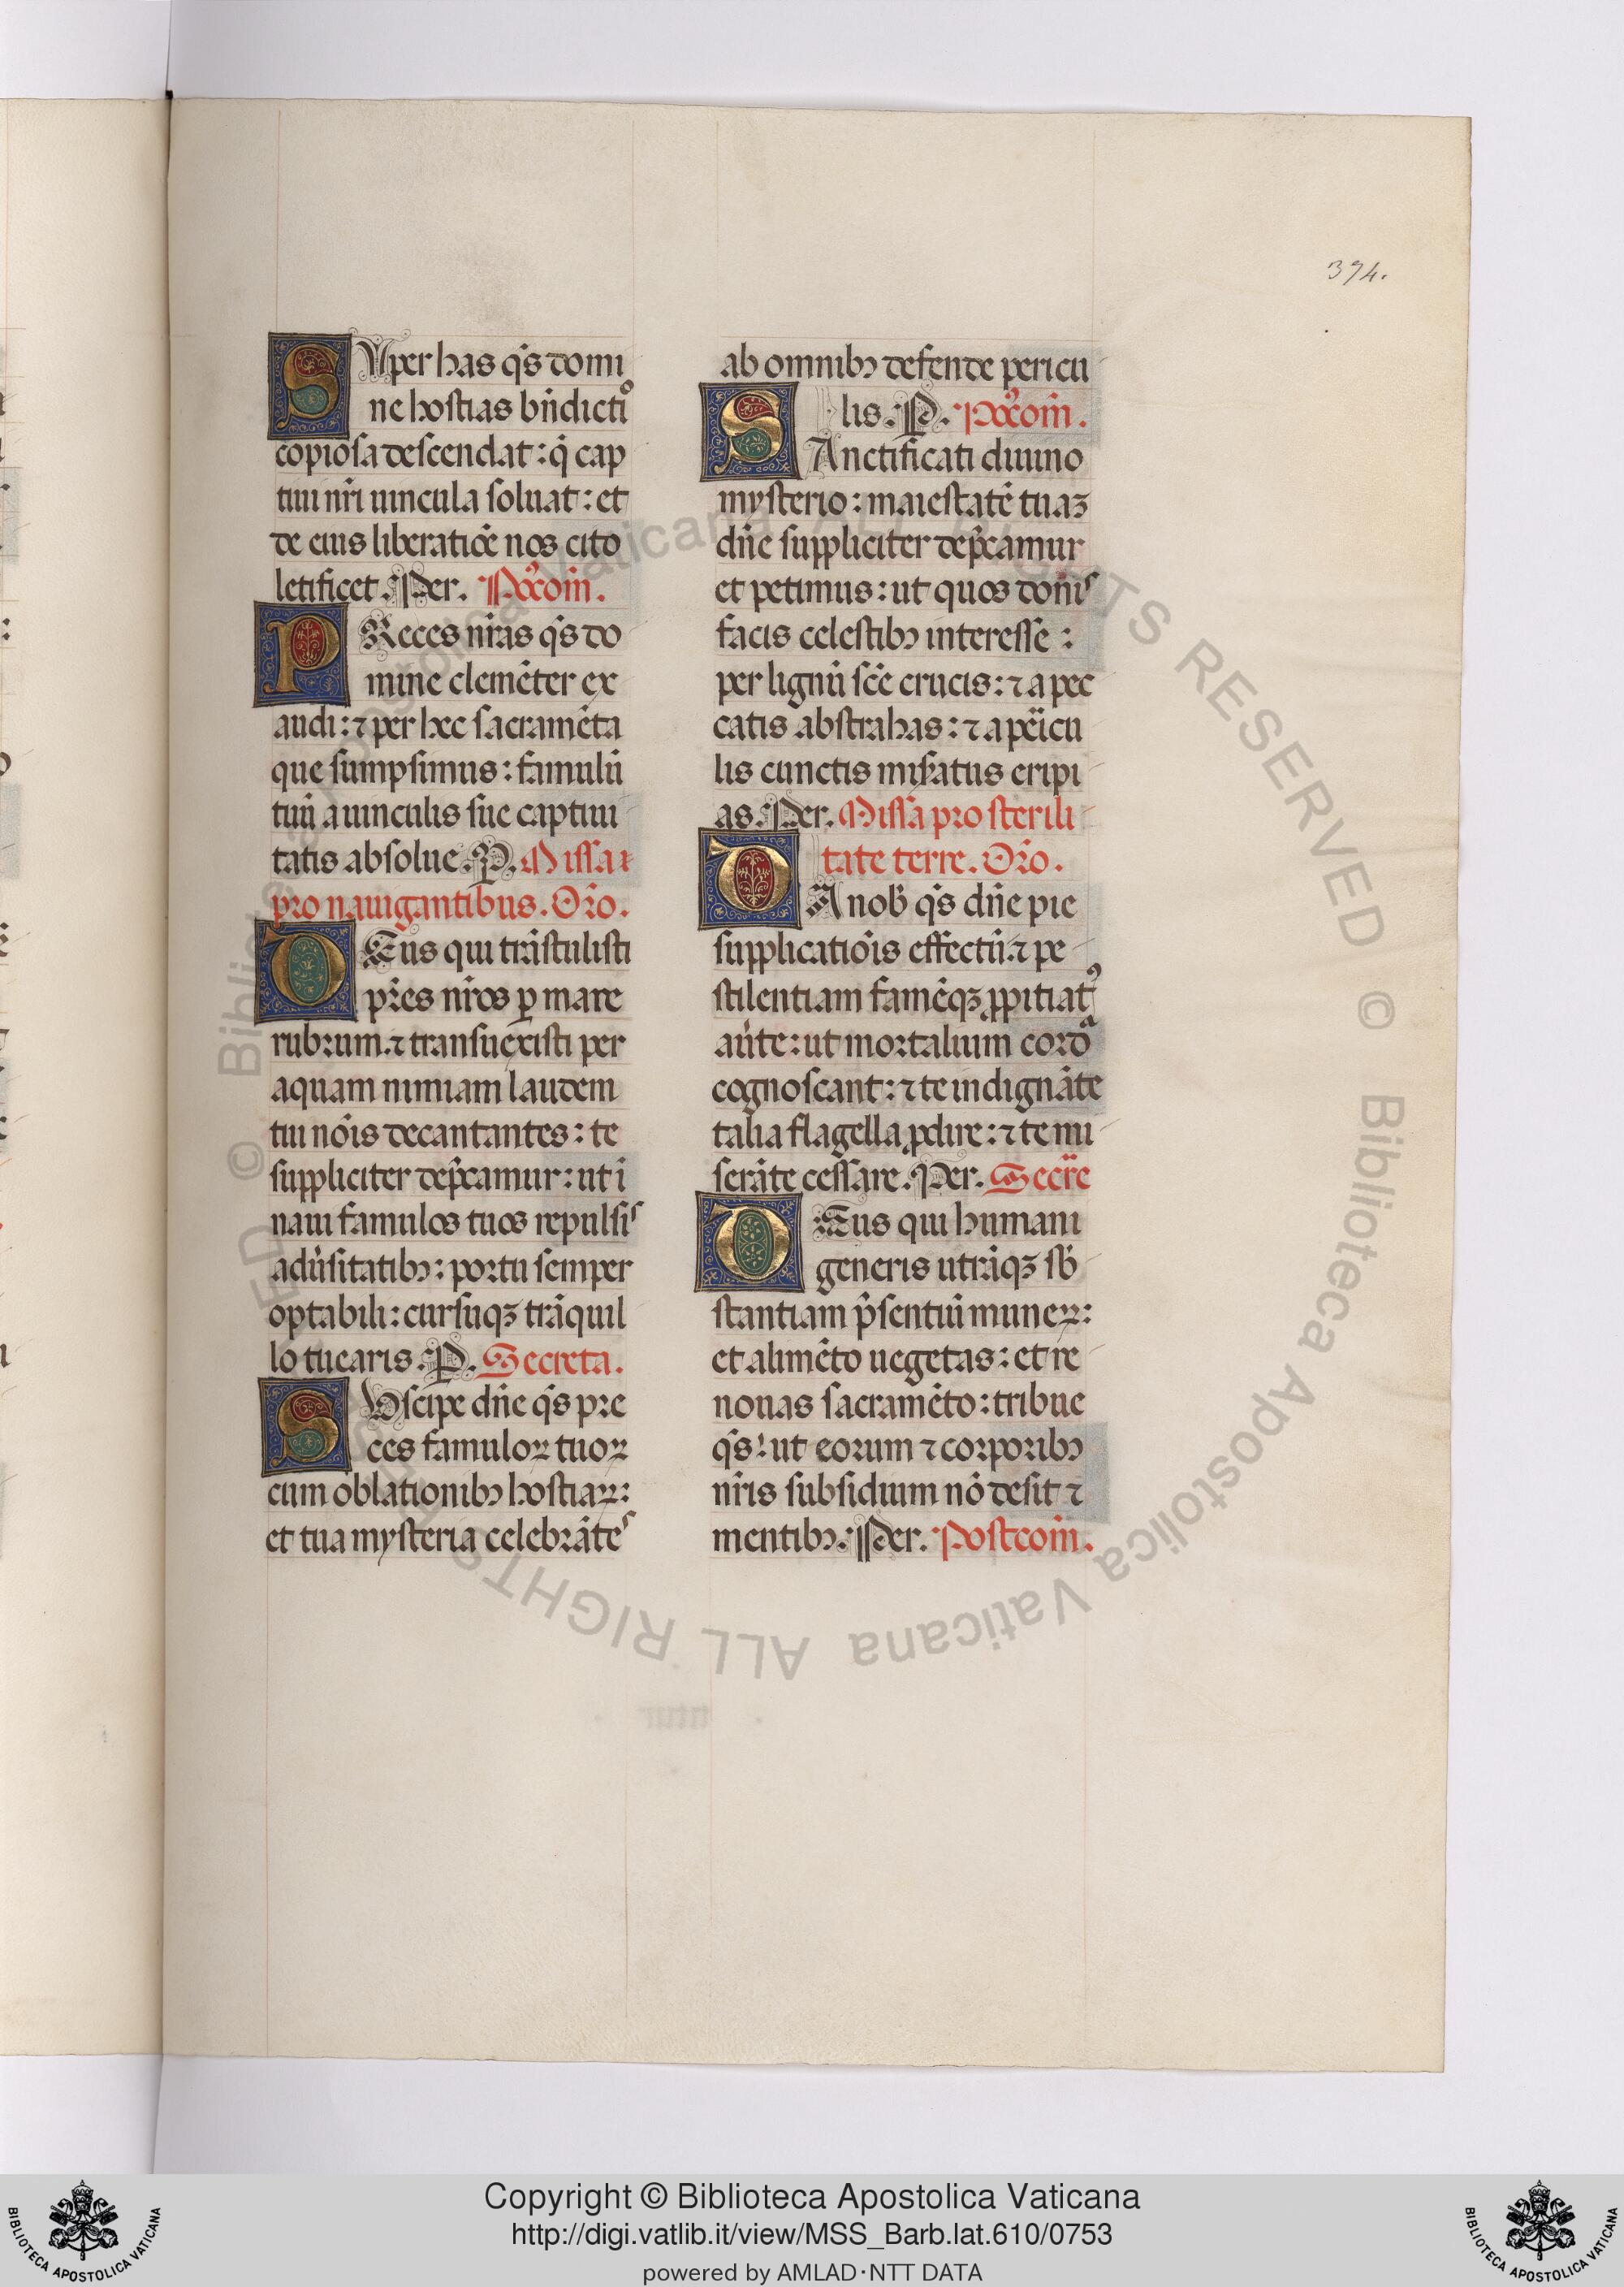 374.
SUper has q̄s domi
ne hostias bn̄dictiꝰ
copiosa descendat: q̄ cap
tiui nr̄i uincula soluat: et
de eius liberatiōe nos cito
letificet. Per. Pꝰcōm.
PReces nr̄as q̄s do
mine clemēter ex
audi: ⁊ per hec sacramēta
que sumpsimus: famulū
tuū a uinculis sue captiui
tatis absolue. P. Missa
pro nauigantibus. Or̄o.
DEus qui trāstulisti
pr̄es nr̄os ꝑ mare
rubrum. ⁊ transuexisti per
aquam nimiam laudem
tui nōis decantantes: te
suppliciter dep̄camur: ut ī
naui famulos tuos repulsis
adūsitatibꝫ: portu semper
optabili: cursuqꝫ trāquil
lo tuearis. P. Secreta.
SUscipe dn̄e q̄s pre
ces famuloꝝ tuoꝝ
cum oblationibꝫ hostiaꝝ:
et tua mysteria celebrātes
ab omnibꝫ defende pericu
lis. P. Pꝰcōm.
SAnctificati diuino
mysterio: maiestatē tuaꝫ
dn̄e suppliciter dep̄camur
et petimus: ut quos donis
facis celestibꝫ interesse:
per lignū scē crucis: ⁊ a pec
catis abstrahas: ⁊ a pēicu
lis cunctis mis̄atus eripi
as. Per. Missa pro sterili
tate terre. Or̄o.
DA nob̄ q̄s dn̄e pie
supplicatiōis effectū. ⁊ pe
stilentiam famēqꝫ ꝓpitiatꝰ
aūte: ut mortalium cordᵃ
cognoscant: ⁊ te indignāte
talia flagella ꝓdire: ⁊ te mi
serāte cessare. Per. Secr̄e
DEus qui humani
generis utrāqꝫ sb̄
stantiam p̄sentiū muneꝝ:
et alimēto uegetas: et re
nouas sacramēto: tribue
q̄s: ut eorum ⁊ corporibꝫ
nr̄is subsidium nō desit ⁊
mentibꝫ. Per. Postcōm.
© Biblioteca Apostolica Vaticana ALL RIGHTS RESERVED © Biblioteca Apostolica Vaticana ALL RIGHTS RESERVED
Copyright © Biblioteca Apostolica Vaticana
http://digi.vatlib.it/view/MSS_Barb.lat.610/0753
powered by AMLAD·NTT DATA
BIBLIOTECA APOSTOLICA VATICANA
BIBLIOTECA APOSTOLICA VATICANA